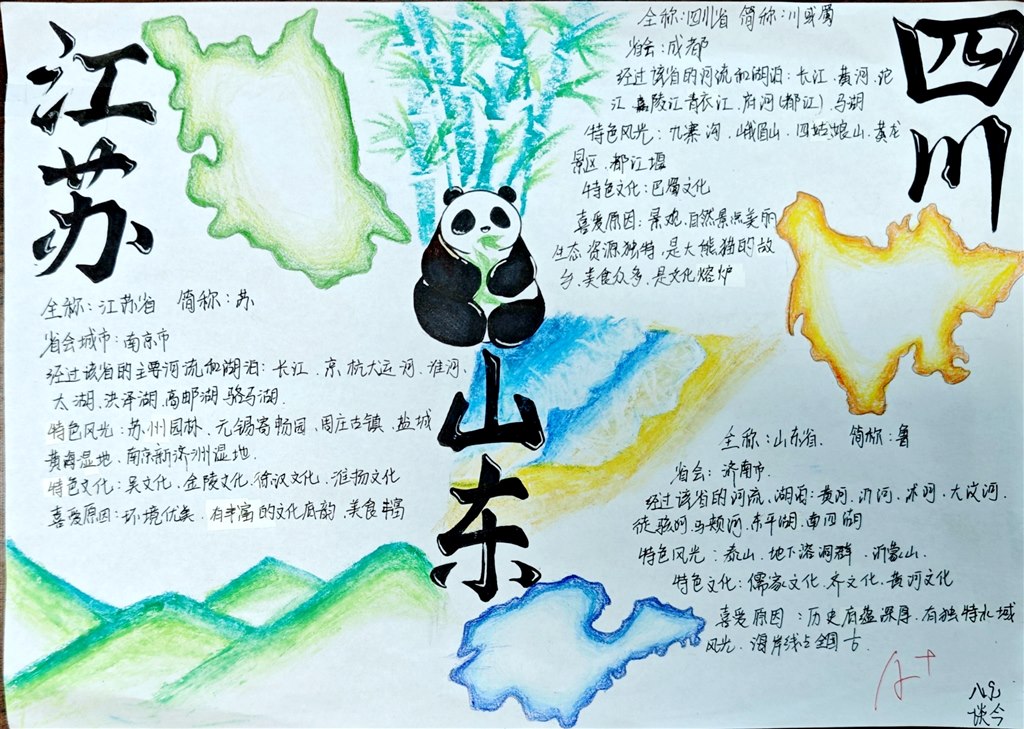 江苏
全称：江苏省 简称：苏
省会城市：南京市
经过该省的主要河流和湖泊：长江、京杭大运河、淮河、
太湖、洪泽湖、高邮湖、骆马湖.
特色风光：苏州园林、无锡寄畅园、周庄古镇、盐城
黄海湿地、南京新济洲湿地.
特色文化：吴文化、金陵文化、徐汉文化、淮扬文化
喜爱原因：环境优美，有丰富的文化底韵，美食丰富
四川
全称：四川省 简称：川或蜀
省会：成都
经过该省的河流和湖泊：长江、黄河、沱
江、嘉陵江、青衣江、府河(都江)、马湖
特色风光：九寨沟、峨眉山、四姑娘山、黄龙
景区、都江堰
特色文化：巴蜀文化
喜爱原因：景观、自然景点美丽
生态资源独特，是大熊猫的故
乡，美食众多，是文化熔炉
山东
全称：山东省. 简称：鲁
省会：济南市.
经过该省的河流、湖泊：黄河、沂河、沭河、大汶河、
徒骇河、马颊河、东平湖、南四湖
特色风光：泰山、地下溶洞群、沂蒙山.
特色文化：儒家文化、齐文化、黄河文化
喜爱原因：历史底蕴深厚，有独特水域
风光，海岸线占全国
A+
谈今